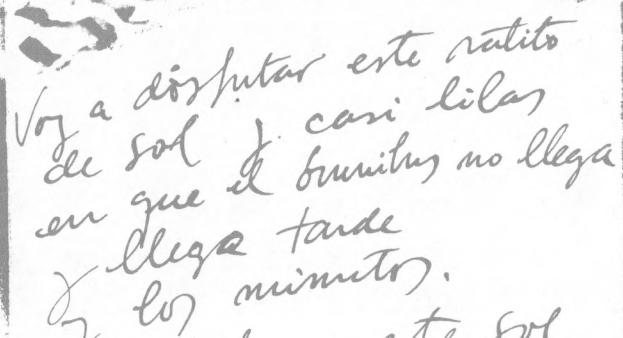 Voy a disfrutar este ratito
de sol y casi lilas
en que el ómnibus no llega
y llega tarde
y los minutos.
este sol